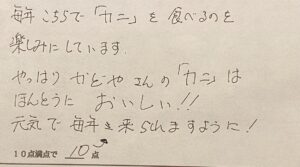 毎年こちらで「カニ」を食べるのを
楽しみにしています
やっぱりかどやさんの「カニ」は
ほんとうにおいしい!!
元気で毎年来られますように!
10点満点で 10点